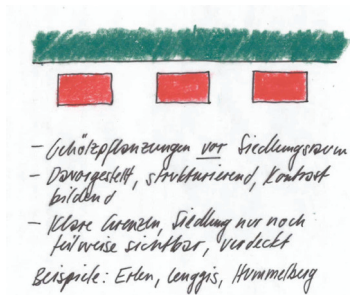 - Gehölzpflanzungen vor Siedlungsraum
- Davorgestellt, strukturierend, Kontrast
bildend
- Klare Grenzen, Siedlung nur noch
teilweise sichtbar, verdeckt
Beispiele: Erlen, Lenggis, Hummelberg